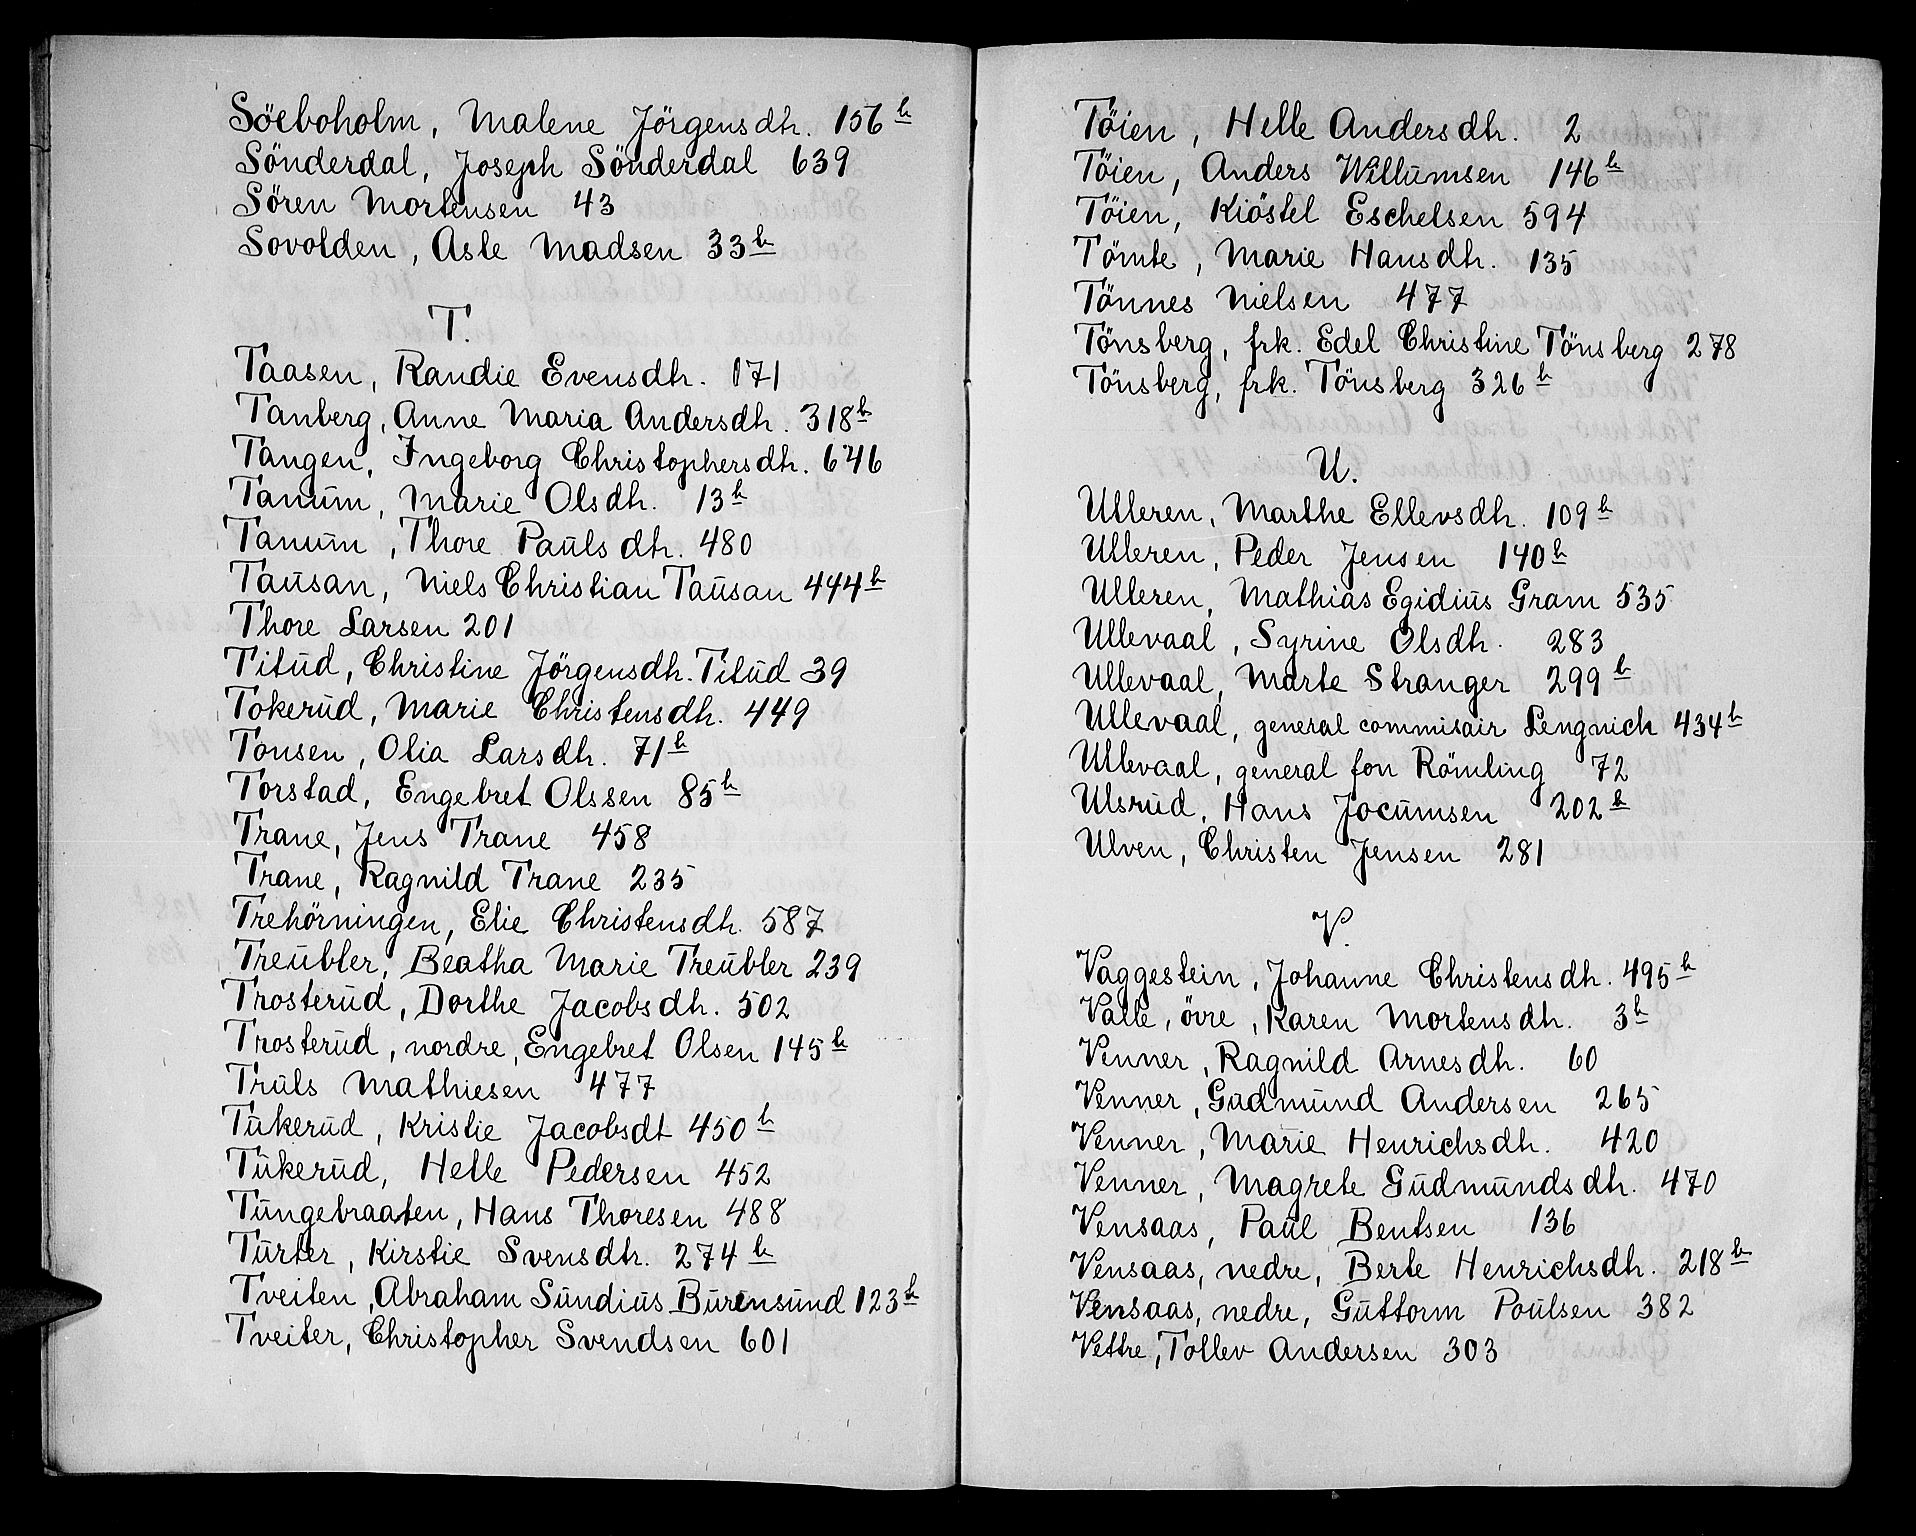 Söeboholm, Malene Jörgensdh. 156b
Sönderdal, Joseph Sönderdal 639
Sören Mortensen 43
Sovolden, Asle Madsen 33b
T.
Taasen, Randie Evensdh. 171
Tanberg, Anne Maria Andersdh. 318b
Tangen, Ingeborg Christophersdh. 646
Tanum, Marie Olsdh. 13b
Tanum, Thore Paulsdh. 480
Tausan, Niels Christian Tausan 444b
Thore Larsen 201
Titud, Christine Jörgensdh. Titud 39
Tokerud, Marie Christensdh. 449
Tonsen, Olia Larsdh. 71b
Torstad, Engebret Olssen 85b
Trane, Jens Trane 458
Trane, Ragnild Trane 235
Trehörningen, Elie Christensdh. 587
Treubler, Beatha Marie Treubler 239
Trosterud, Dorthe Jacobsdh. 502
Trosterud, nordre, Engebret Olsen 145b
Truls Mathiesen 477
Tukerud, Kristie Jacobsdt 450b
Tukerud, Helle Pedersen 452
Tungebraaten, Hans Thoresen 488
Turter, Kirstie Svensdh. 274b
Tveiten, Abraham Sundius Burensund 123b
Tveiter, Christopher Svendsen 601
Töien, Helle Andersdh. 2
Töien, Anders Willumsen 146b
Töien, Kiöstel Eschelsen 594
Tömte, Marie Hansdh. 135
Tönnes Nielsen 477
Tönsberg, frk. Edel Christine Tönsberg 278
Tönsberg, frk. Tönsberg 326b
U.
Ulleren, Marthe Ellevsdh. 109b
Ulleren, Peder Jensen 140b
Ulleren, Mathias Egidius Gram 535
Ullevaal, Syrine Olsdh. 283
Ullevaal, Marte Stranger 299b
Ullevaal, general commisair Lengnick 434b
Ullevaal, general fon Römling 72
Ulsrud, Hans Jocumsen 202b
Ulven, Christen Jensen 281
V.
Vaggestein, Johanne Christensdh. 495b
Valle, övre, Karen Mortensdh. 3b
Venner, Ragnild Arnesdh. 60
Venner, Gudmund Andersen 265
Venner, Marie Henrichsdh. 420
Venner, Magrete Gudmundsdh. 470
Vensaas, Paul Bentsen 136
Vensaas, nedre, Berte Henrichsdh. 218b
Vensaas, nedre, Guttorm Poulsen 382
Vettre, Tollev Andersen 303